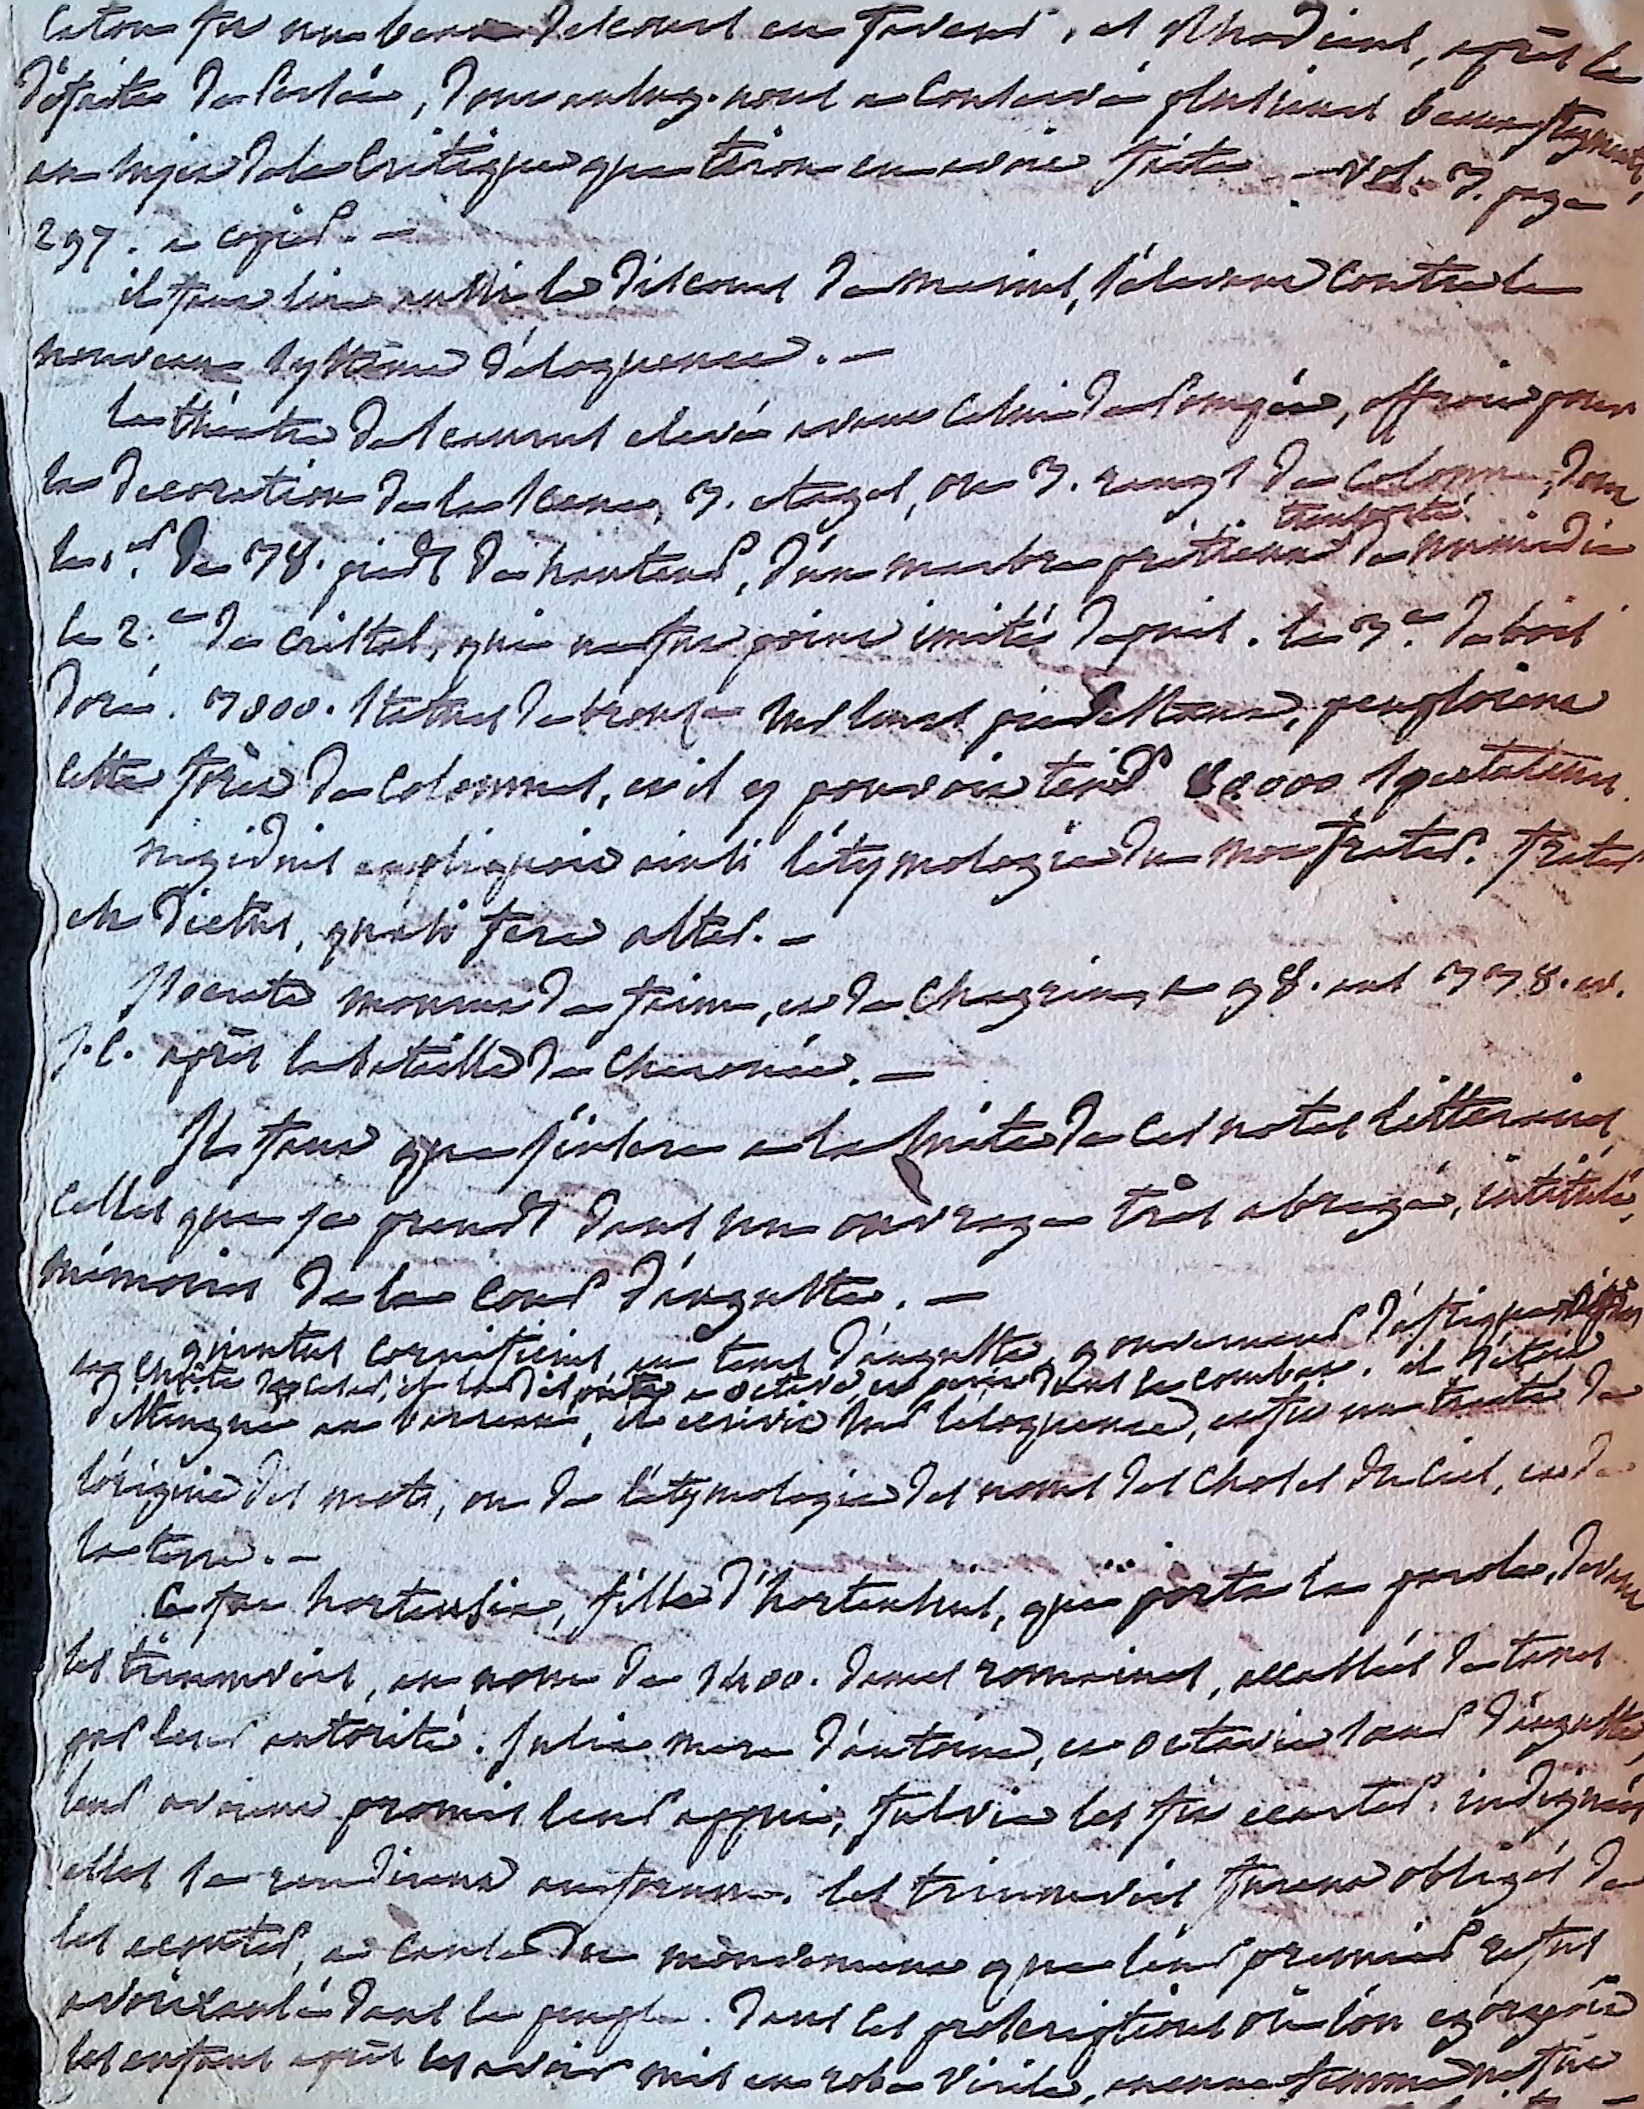 Caton fit un beau discours en faveur, es Rhodiens, après la
défaite de Persée, dont aulug. nous a conservé plusieurs beaux fragments,
au sujet de la critique que tiron en avoit faite — vol. 3. page
297. a copier. —
il faut lire aussi le discours de messius, s'élevant contre le
nouveau systême d'éloquence. —
le théatre de scaurus elevé avant celui de Pompée, offroit pour
la decoration de la scene, 3. etages, ou 3. rangs de colonnes, dont
le 1.er de 38. pieds de hauteur, d'un marbre prétieux transporté de numidie
le 2.e de cristal, qui ne fut point imité depuis. le 3.e de bois
doré. 3000. statues de bronze sur leurs piedestaux, peuploient
cette forêt de colonnes, et il y pouvoit tenir 80000 spectateurs.
nigidius expliquoit ainsi l'étymologie du mot frater. frater
est dictus, quasi fere alter. —
Isocrate mourut de faim, et de chagrin, a 98. ans 338. av.
J. C. après la bataille de Cheronée. —
Il faut que j'insere a la suite de ces notes litteraires
celles que je prends dans un ouvrage très abregé, intitulé,
mémoires de la cour d'auguste. —
quintus cornificius, au tems d'auguste, gouverneur d'afrique
ensuite il la disputa a octave, et perit dans le combat. il s'étoit
distingué au barreau, il ecrivit sur l'éloquence, et fit un traité de
l'origine des mots, ou de l'étymologie des noms des choses du ciel, et de
la terre. —
Ce fut hortensia, fille d'hortensius, qui porta la parole, devant
les triumvirs, au nom de 1400. dames romaines, accablées de taxes
par leur autorité. Julie mere d'antoine, et octavie soeur d'auguste,
leur avoient promis leur appui, fulvie les fit ecarter. indignées
elles se rendirent au forum. les triumvirs furent obligés de
les ecouter, a cause du mouvement que leur premier refus
avoit causé dans le peuple. dans les proscriptions où l'on egorgeoit
les enfans après les avoir mis en robe virile, aucune femme ne fut